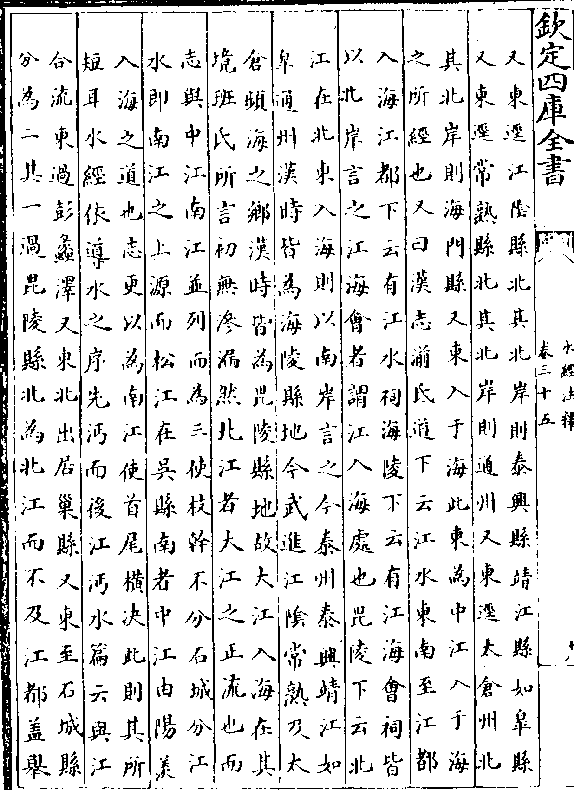 欽定四庫全書
水經注釋
卷三十五
又東逕江陰縣北其北岸則泰興縣靖江縣如臯縣
又東逕常熟縣北其北岸則通州又東逕太倉州北
其北岸則海門縣又東入于海此東為中江入于海
之所經也又曰漢志湔氐道下云江水東南至江都
入海江都下云有江水祠海陵下云有江海會祠皆
以北岸言之江海會者謂江入海處也毘陵下云北
江在北東入海則以南岸言之今泰州泰興靖江如
臯通州漢時皆為海陵縣地今武進江陰常熟乃太
倉頭海之鄉漢時皆為毘陵縣地故大江入海在其
境班氏所言初無滲漏然北江者大江之正流也而
志與中江南江並列而為三使枝幹不分石城分江
水即南江之上源而松江在吳縣南者中江由陽羡
入海之道也志更以為南江使首尾橫决此則其所
短耳水經依導水之序先沔而後江沔水篇云與江
合流東過彭蠡澤又東北出居巢縣又東至石城縣
分為二其一過毘陵縣北為北江而不及江都蓋舉